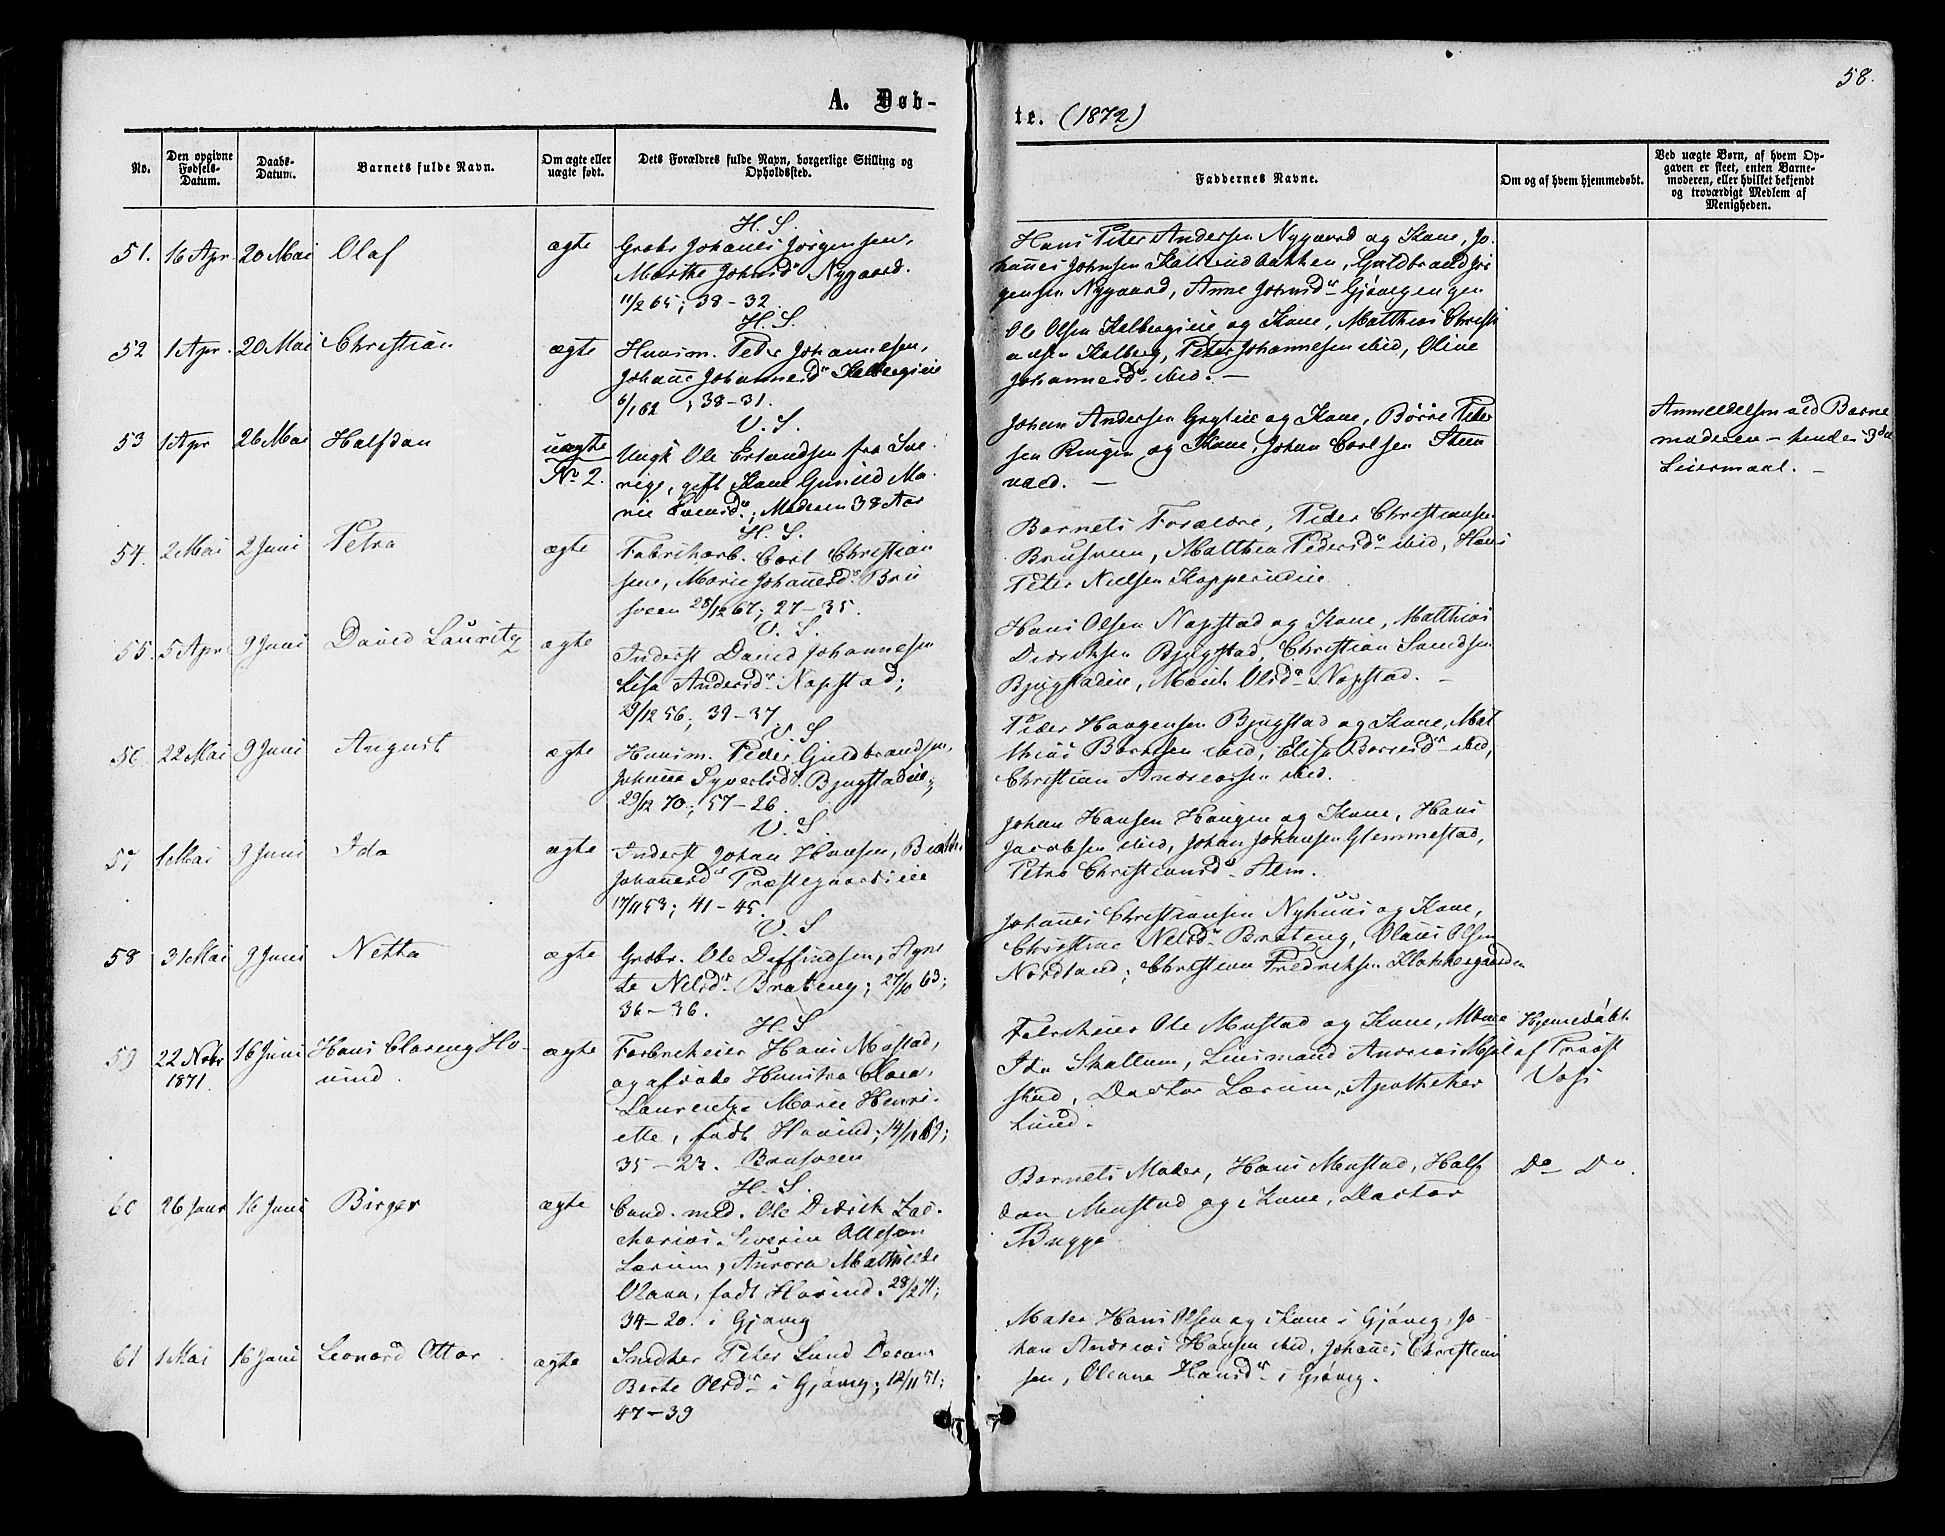 58.
A. Døb-
te. (1872)
No.
Den opgivne
Fødsels-
Datum.
Daabs-
Datum.
Barnets fulde Navn.
Om ægte eller
uægte født.
Dets Forældres fulde Navn, borgerlige Stilling og
Opholdssted.
Faddernes Navne.
Om og af hvem hjemmedøbt.
Ved uægte Børn, af hvem Op-
gaven er skeet, enten Barne-
moderen, eller hvilket bekjendt
og troværdigt Medlem af
Menigheden.
51. 16 Apr 20 Mai Olaf ægte
H. S.
Grobr Johanes Jørgensen,
Marthe Johnsdr Nygaard.
11/2 65; 38-32.
Hans Peter Andersen Nygaard og Kone, Jo-
hanes Johnsen Kallerudbakken, Guldbrand Jør
gensen Nygaard, Anne Johnsdr Gjøvigengen
52 1 Apr. 20 Mai Christian ægte
H. S.
Huusm. Peder Johannesen,
Johane Johannesdr Kalbergeie
6/1 62; 38-31.
Ole Olsen Kalbergeie og Kone, Matthias Christi
ansen Kalberg, Peter Johannesen ibid, Oline
Johannesdr ibid. -
53 1 Apr 26 Mai Halfdan uægte
No 2.
V. S.
Ungk Ole Erlandsen fra Sve
rige, gift Kone Gunild Ma-
rie Evensdr; Moderen 38 Aar
Johan Andersen Gryteie og Kone, Børre Peder
sen Ringen og Kone, Johan Carlsen Steen
vaed. -
Anmeldelsen ved Barne
moderen - hendes 3die
Leiermaal. -
54. 2 Mai 2 Juni Petra ægte
H. S.
Fabrikarb. Carl Christian
sen, Marie Johanesdr Bru
sveen 28/12 67; 27-35.
Barnets Forældre, Peder Christiansen
Brusveen, Matthea Pedersdr ibid, Hans
Peter Nielsen Kopperudeie
55. 5 Apr 9 Juni David Lauritz ægte
V. S.
Inderst David Johannesen
Lisa Andersdr Nøpstad;
29/12 56; 39-37
Hans Olsen Nøpstad og Kone, Matthias
Didriksen Bjugstad, Christian Svendsen
Bjugstadeie, Marit Olsdr Nøpstad. -
56. 22 Mai 9 Juni August ægte
V. S
Huusm. Peder Guldbrandsen,
Johane Syversdr Bjugstadeie;
29/12 70; 57-26.
Peder Haagensen Bjugstad og Kone, Mat
thias Børresen ibid, Elise Børresdr ibid,
Christian Andreassen ibid.
57 1 Mai 9 Juni Ida ægte
V. S.
Inderst Johan Hansen, Berthe
Johanesdr Præstegaardseie
17/11 53; 41-45.
Johan Hansen Haugen og Kone, Hans
Jacobsen ibid, Johan Johansen Glemmestad,
Petra Christiansdr Alm.
58 31 Mai 9 Juni Netta ægte
V. S
Grobr. Ole Deffindsen, Agne
te Nilsdr Brateng; 27/10 63;
36-36.
Johanes Christiansen Nyhuus og Kone,
Christine Nilsdr Brateng, Olaus Olsen
Nordland; Christian Fredriksen Klokkergaarden
59 22 Nobr 16 Juni Hans Clareng Ho- ægte
1871. vind.
H. S
Fabrikeier Hans Mustad,
og afdøde Hunstra Clara
Laurentze Marie Henri-
ette, født Hovind; 14/10 69;
35-23. Brusveen
Fabrikeier Ole Mustad og Kone, Mme
Ida Skallum, Lensmand Andreas Mjøl
stad, Doctor Lærum, Apotheker
Lund.
Hjemedøbt
af Provst
Vosi
60 26 Janr 16 Juni Birger ægte
H. S.
Cand. med. Ole Didrik Zac-
charias Severin Ottesen
Lærum, Aurora Mathilde
Olava, født Hovind. 28/2 71;
34-20. i Gjøvig
Barnets Moder, Hans Mustad, Half
dan Mustad og Kone, Doctor
Bugge
Do Do.
61 1 Mai 16 Juni Leonard Ottar ægte
Snedker Peter Lund
Berte Olsdr i Gjøvig; 12/11 51;
47-39
Maler Hans Olsen og Kone i Gjøvig, Jo-
han Andreas Hansen ibid, Johanes Christian
sen, Oleane Hansdr i Gjøvig.